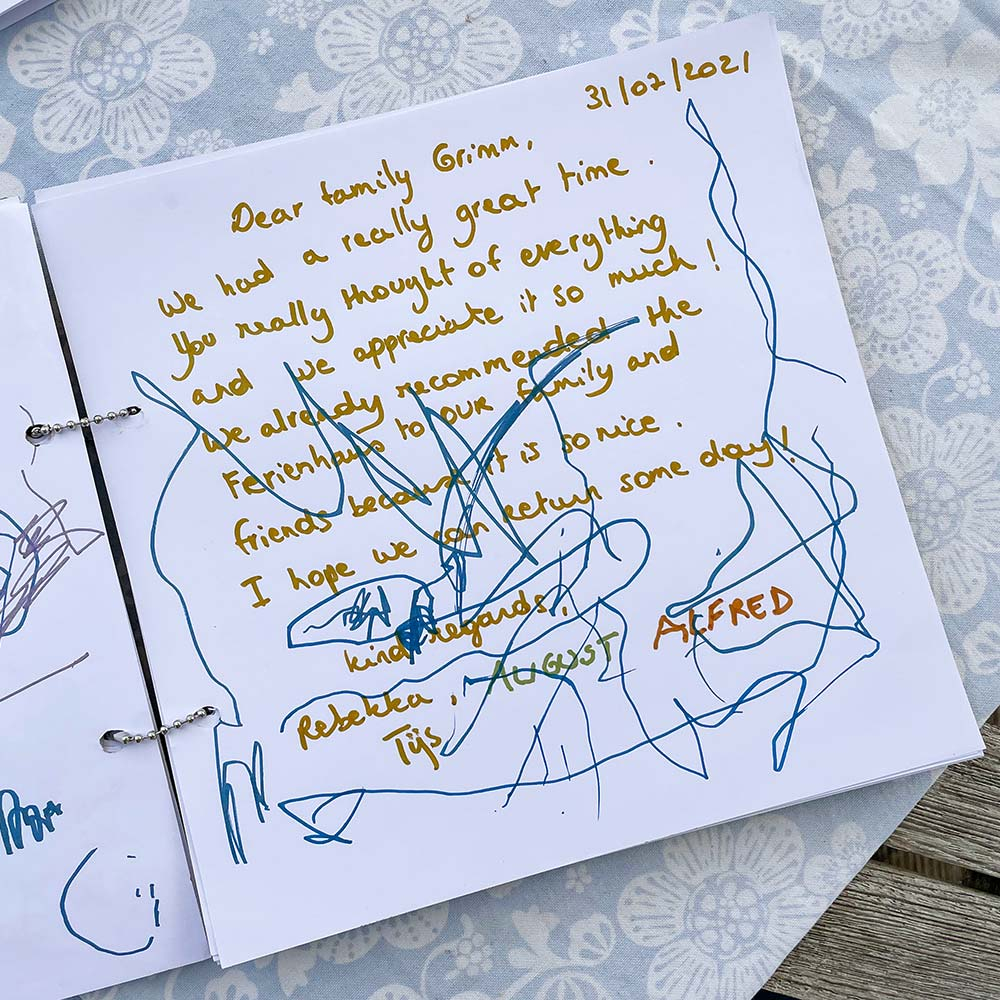 31/07/2021
Dear family Grimm,
We had a really great time.
You really thought of everything
and we appreciate it so much!
We already recommended the
Ferienhaus to our family and
friends because it is so nice.
I hope we can return some day!
kind regards,
Rebekka, AUGUST ALFRED
Tijs